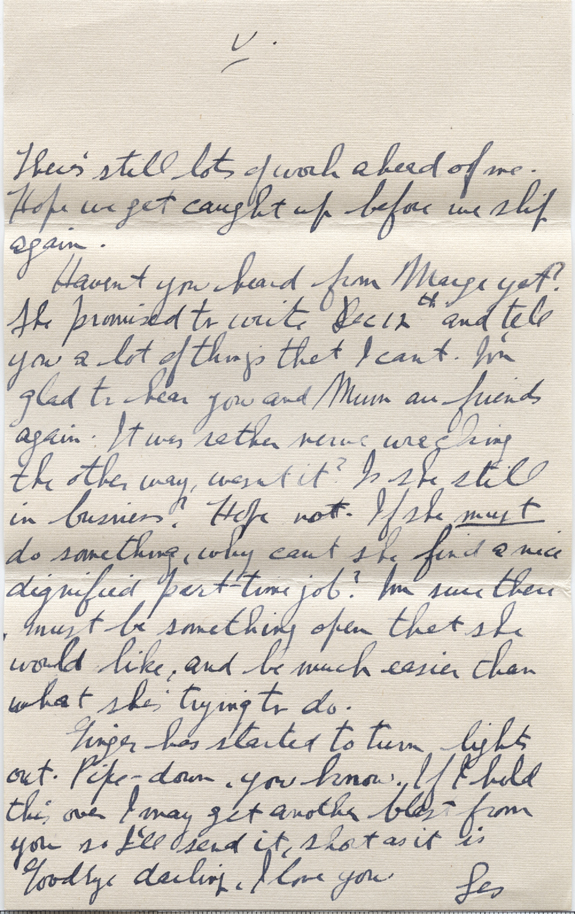 V.
There's still lots of work ahead of me.
Hope we get caught up before we ship
again.
Haven't you heard from Marge yet?
She promised to write Dec 12th and tell
you a lot of things that I can't. I'm
glad to hear you and Mum are friends
again. It was rather nerve wracking
the other way, wasn't it? Is she still
in business? Hope not. If she must
do something, why can't she find a nice
dignified part-time job? I'm sure there
must be something open that she
would like, and be much easier than
what she's trying to do.
Ginger has started to turn lights
out. Pipe-down, you know. If I hold
this over I may get another blast from
you so I'll send it, short as it is
Goodbye darling, I love you.
Les